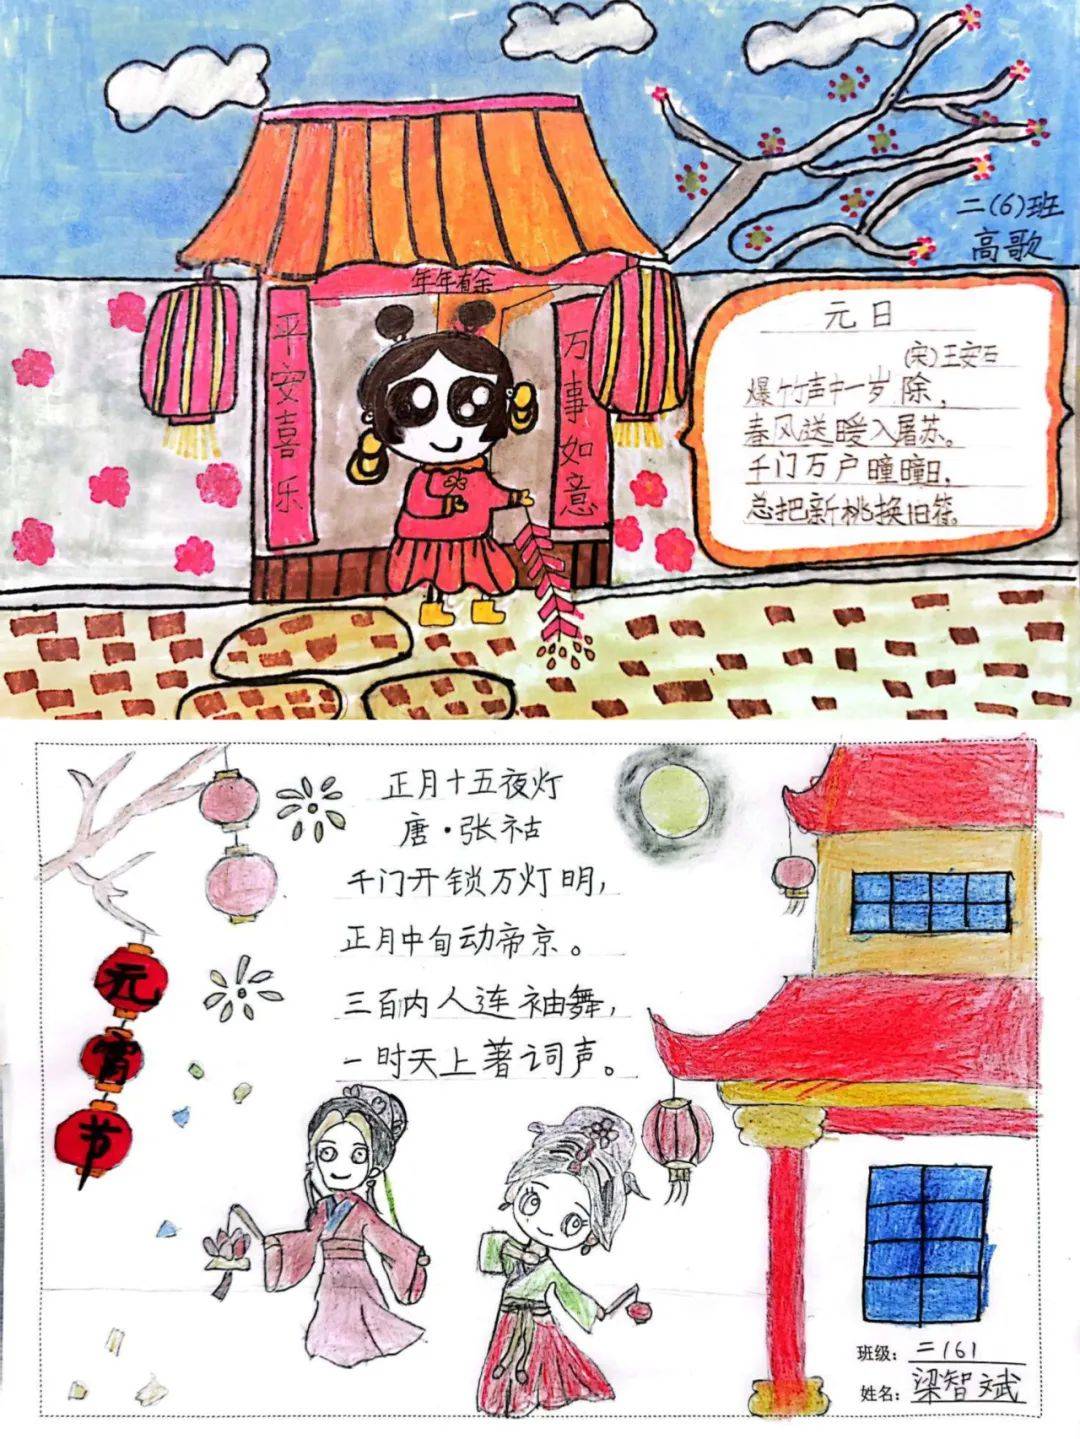 二(6)班
高歌
年年有余
平安喜乐
万事如意
元日
(宋)王安石
爆竹声中一岁除，
春风送暖入屠苏。
千门万户曈曈日，
总把新桃换旧符。
正月十五夜灯
唐·张祜
千门开锁万灯明，
正月中旬动帝京。
三百内人连袖舞，
一时天上著词声。
元宵节
班级：二(6)
姓名：梁智斌